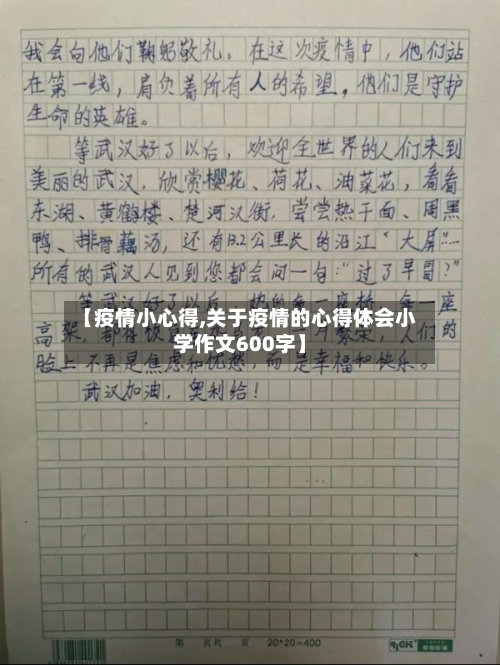 我会向他们鞠躬敬礼。在这次疫情中，他们站
在第一线，肩负着所有人的希望。他们是守护
生命的英雄。
等武汉好了以后，欢迎全世界的人们来到
美丽的武汉，欣赏樱花、荷花、油菜花，看看
东湖、黄鹤楼、楚河汉街，尝尝热干面、周黑
鸭、排骨藕汤，还有13.2公里长的沿江“大屏”……
所有的武汉人见到您都会问一句：“过了早冒？”
等武汉好了以后，她的每一座桥，每一座
【疫情小心得,关于疫情的心得体会小
学作文600字】
高架，都将恢复 繁荣，人们的
脸上不再是焦虑和忧愁，而是幸福和快乐。
武汉加油，奥利给！
第 页共 页 20*20=400